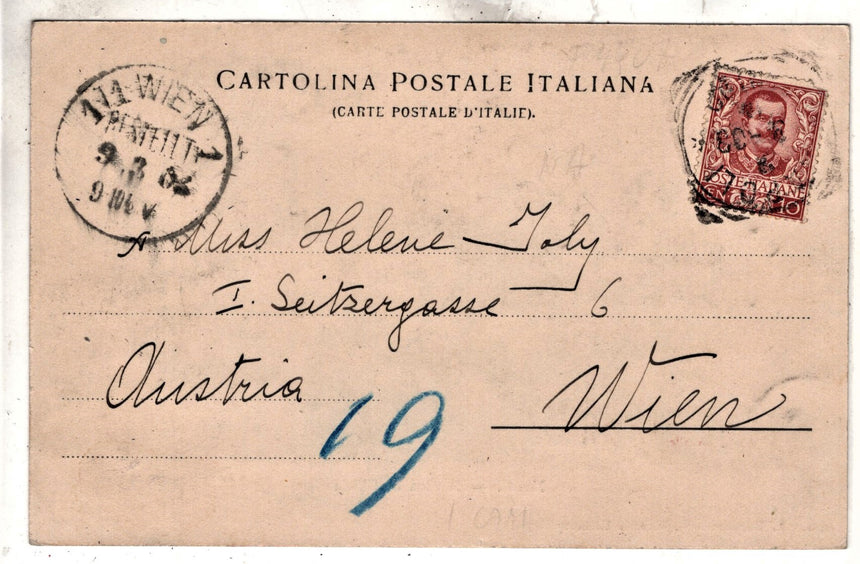 CARTOLINA POSTALE ITALIANA
(CARTE POSTALE D'ITALIE).
1/1 WIEN 1
BESTELLT
9. 3 02
9
POSTE ITALIANE
CENT. 10
- 02
Miss Helene Joly
I. Seitzergasse 6
Austria
Wien
19